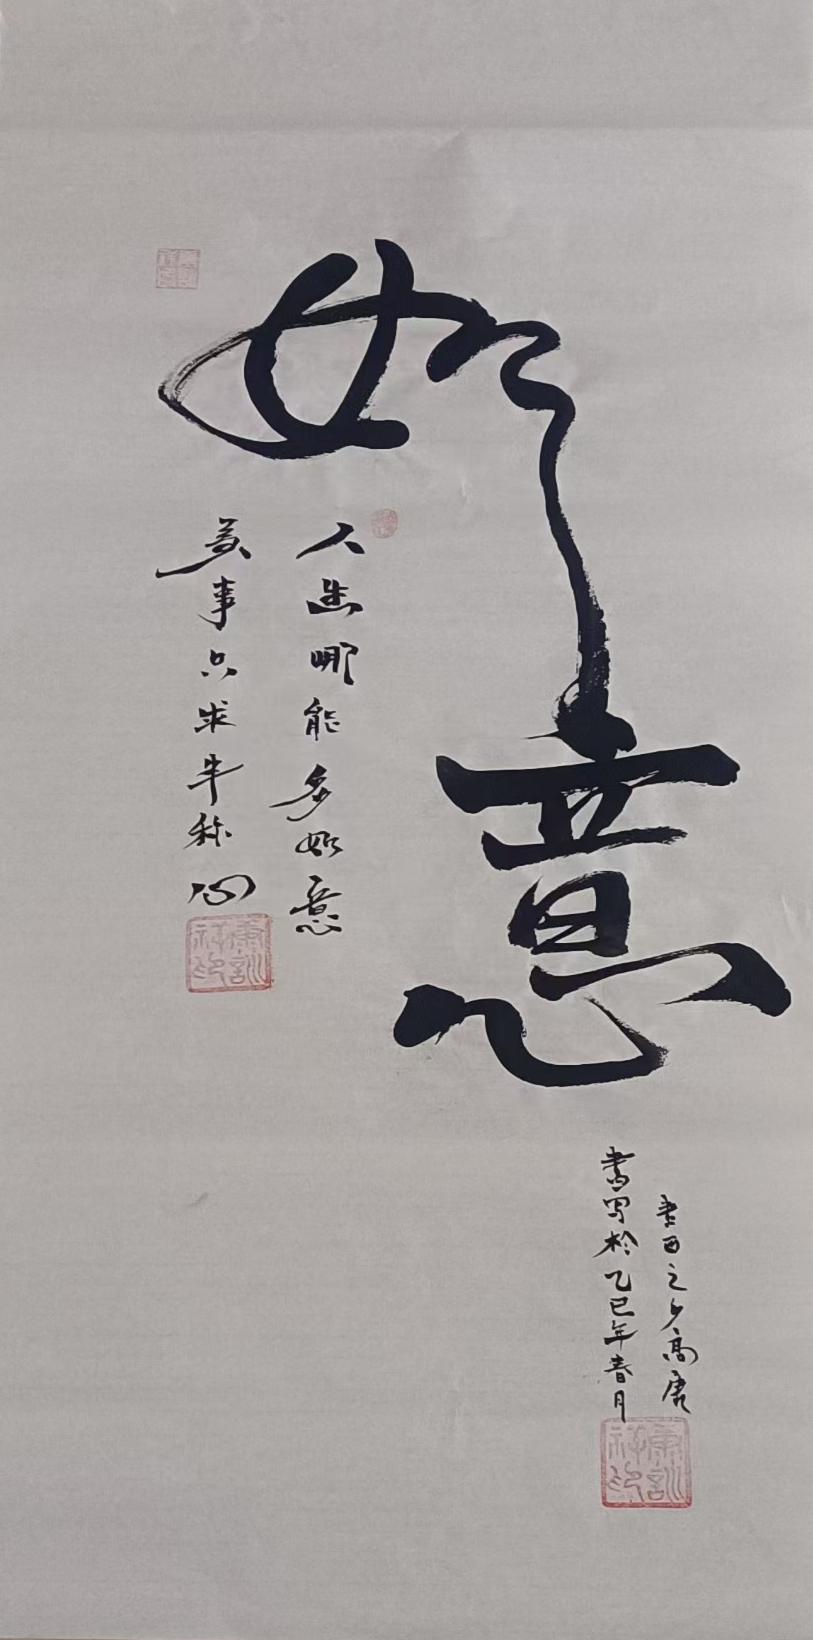 如意
人生哪能多如意
万事只求半称心
书画之乡高唐
书写於乙巳年春月